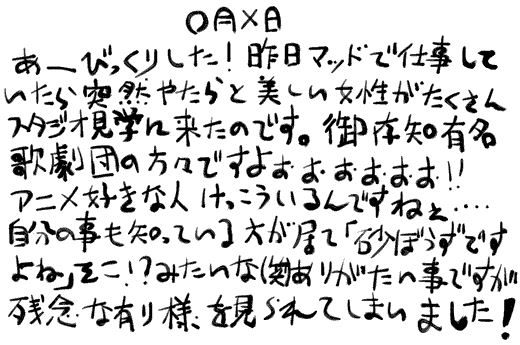 〇月×日
あーびっくりした！昨日マッドで仕事して
いたら突然やたらと美しい女性がたくさん
スタジオ見学に来たのです。御存知有名
歌劇団の方々ですよぉぉぉぉぉぉ!!
アニメ好きな人けっこういるんですねぇ････
自分の事も知っている方が居て「砂ぼうずです
よね」そこ!?みたいな(笑)ありがたい事ですが
残念な有り様を見られてしまいました！